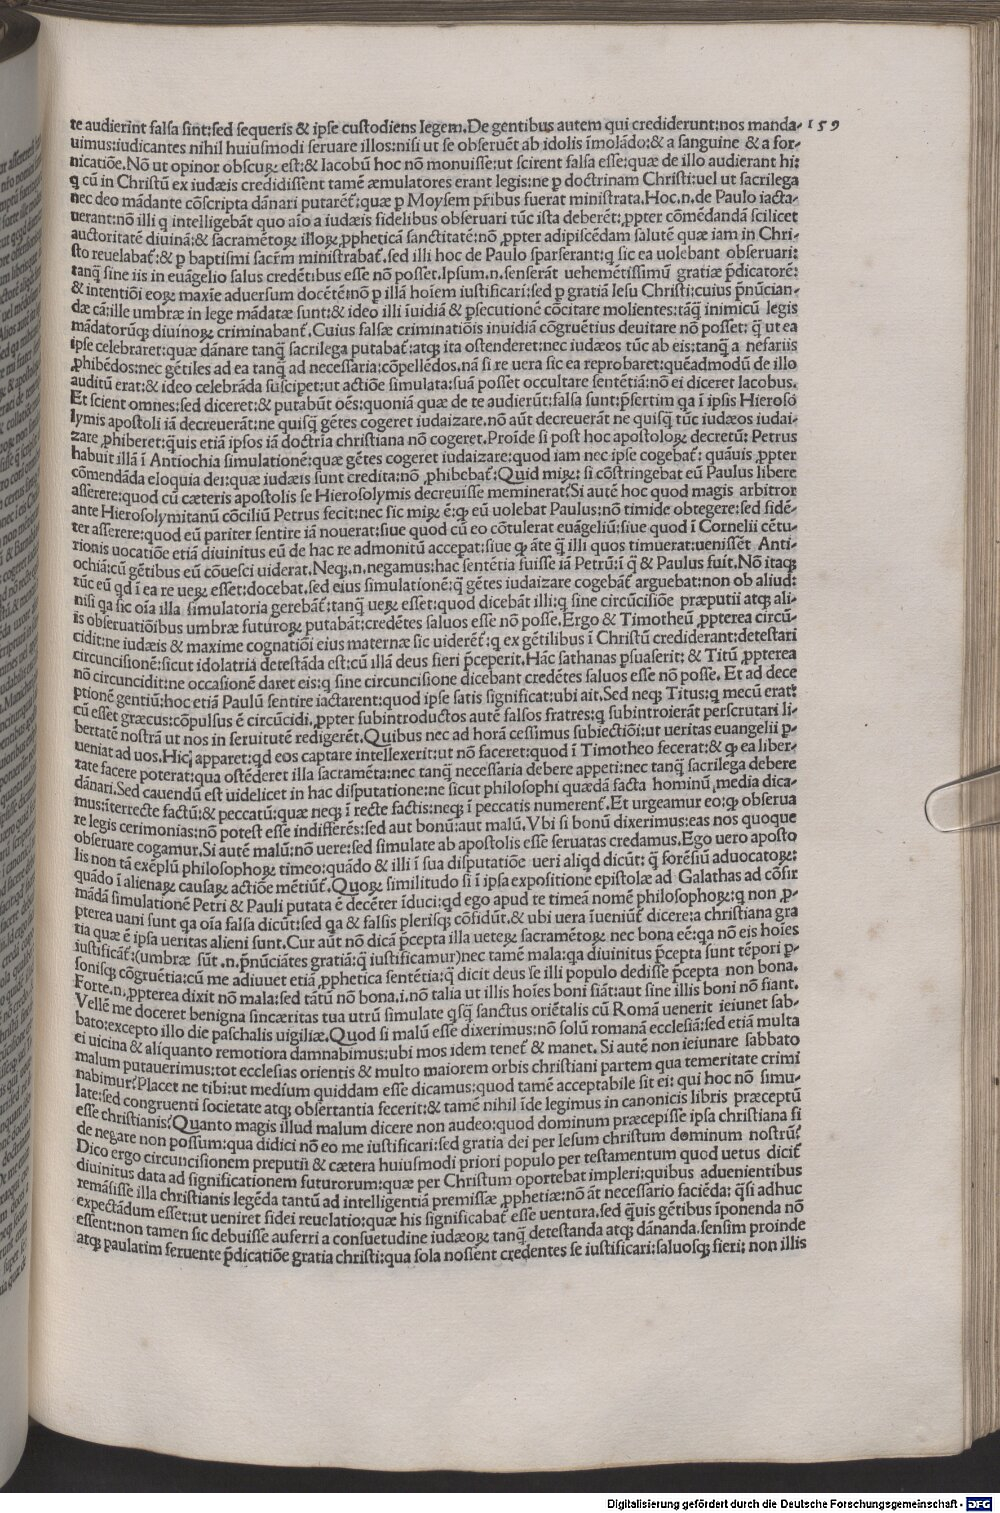 te audierint falsa sint:sed sequeris & ipse custodiens legem.De gentibus autem qui crediderunt:nos manda- 159
uimus:iudicantes nihil huiusmodi seruare illos:nisi ut se obseruēt ab idolis īmolādo:& a sanguine & a for-
nicatiōe.Nō ut opinor obscuꝝ est:& Iacobū hoc nō monuisse:ut scirent falsa esse:quæ de illo audierant hi:
q cū in Christū ex iudæis credidissent tamē æmulatores erant legis:ne p doctrinam Christi:uel ut sacrilega
nec deo mādante cōscripta dānari putarēt:quæ p Moysem p̄ribus fuerat ministrata.Hoc.n.de Paulo iacta-
uerant:nō illi q intelligebāt quo aīo a iudæis fidelibus obseruari tūc ista deberēt:ꝓpter cōmēdandā scilicet
auctoritatē diuinā:& sacramētoꝝ illoꝝ ꝓpheticā sanctitatē:nō ꝓpter adipiscēdam salutē quæ iam in Chri-
sto reuelabat̄:& p baptismi sacr̄m ministrabat̄.sed illi hoc de Paulo sparserant:q sic ea uolebant obseruari:
tanq̄ sine iis in euāgelio salus credētibus esse nō posset.Ipsum.n.senserāt uehemētissimū gratiæ p̄dicatorē:
& intentiōi eoꝝ maxīe aduersum docētē:nō p illā hoīem iustificari:sed p gratiā Iesu Christi:cuius p̄nūcian-
dæ cā:ille umbræ in lege mādatæ sunt:& ideo illi īuidiā & psecutionē cōcitare molientes:tāq̄ inimicū legis
mādatorūq; diuinoꝝ criminabant̄.Cuius falsæ criminatiōis inuidiā cōgruētius deuitare nō posset: q̄ ut ea
ipse celebraret:quæ dānare tanq̄ sacrilega putabat̄:atq; ita ostenderet:nec iudæos tūc ab eis:tanq̄ a nefariis
ꝓhibēdos:nec gētiles ad ea tanq̄ ad necessaria:cōpellēdos.nā si re uera sic ea reprobaret:quēadmodū de illo
auditū erat:& ideo celebrāda susciperet:ut actiōe simulata:suā posset occultare sentētiā:nō ei diceret Iacobus.
Et scient omnes:sed diceret:& putabūt oēs:quoniā quæ de te audierūt:falsa sunt:p̄sertim qa ī ipsis Hieroso
lymis apostoli iā decreuerāt:ne quisq̄ gētes cogeret iudaizare.nō aūt decreuerāt ne quisq̄ tūc iudæos iudai-
zare ꝓhiberet:q̄uis etiā ipsos iā doctrīa christiana nō cogeret.Proīde si post hoc apostoloꝝ decretū: Petrus
habuit illā ī Antiochia simulationē:quæ gētes cogeret iudaizare:quod iam nec ipse cogebat̄: quāuis ꝓpter
cōmendāda eloquia dei:quæ iudæis sunt credita:nō ꝓhibebat̄:Quid miꝝ: si cōstringebat eū Paulus libere
asserere:quod cū cæteris apostolis se Hierosolymis decreuisse meminerat?Si autē hoc quod magis arbitror
ante Hierosolymitanū cōciliū Petrus fecit:nec sic miꝝ ē:ꝙ eū uolebat Paulus:nō timide obtegere:sed fidē-
ter asserere:quod eū pariter sentire iā nouerat:siue quod cū eo cōtulerat euāgeliū:siue quod ī Cornelii cētu-
rionis uocatiōe etiā diuinitus eū de hac re admonitū accepat:siue ꝙ āte q̄ illi quos timuerat:uenissēt Anti-
ochiā:cū gētibus eū cōuesci uiderat.Neq;.n.negamus:hac sentētia fuisse iā Petrū:ī q̄ & Paulus fuit.Nō itaq;
tūc eū qd ī ea re ueꝝ esset:docebat.sed eius simulationē:q̄ gētes iudaizare cogebāt̄ arguebat:non ob aliud:
nisi qa sic oīa illa simulatoria gerebāt̄:tanq̄ ueꝝ esset:quod dicebāt illi:q sine circūcisiōe præputii atq; ali-
is obseruatiōibus umbræ futuroꝝ:putabāt:credētes saluos esse nō posse.Ergo & Timotheū ꝓpterea circū-
cidit:ne iudæis & maxime cognatiōi eius maternæ sic uiderēt̄:q ex gētilibus ī Christū crediderant:detestari
circuncisionē:sicut idolatria detestāda est:cū illā deus fieri p̄ceperit.Hāc sathanas p̄suaserit: & Titū ꝓpterea
nō circuncidit:ne occasionē daret eis:q sine circuncisione dicebant credētes saluos esse nō posse. Et ad dece
ptionē gentiū:hoc etiā Paulū sentire iactarent:quod ipse satis significat:ubi ait.Sed neq; Titus:q mecū erat:
cū esset græcus:cōpulsus ē circūcidi.ꝓpter subintroductos autē falsos fratres:q subintroierāt perscrutari li-
bertatē nostrā ut nos in seruitutē redigerēt.Quibus nec ad horā cessimus subiectiōi:ut ueritas euangelii p-
ueniat ad uos.Hic apparet:qd eos captare intellexerit:ut nō faceret:quod ī Timotheo fecerat:& ꝙ ea liber-
tate facere poterat:qua ostēderet illa sacramēta:nec tanq̄ necessaria debere appeti:nec tanq̄ sacrilega debere
dānari.Sed cauendū est uidelicet in hac disputatione:ne sicut philosophi quædā facta hominū media dica-
mus:īterrecte factū:& peccatū:quæ neq; ī recte factis:neq; ī peccatis numerent̄.Et urgeamur eo:ꝙ obserua
re legis cerimonias:nō potest esse indifferēs:sed aut bonū:aut malū.Vbi si bonū dixerimus:eas nos quoque
obseruare cogamur.Si autē malū:nō uere:sed simulate ab apostolis esse seruatas credamus.Ego uero aposto
lis non tā exēplū philosophoꝝ timeo:quādo & illi ī sua disputatiōe ueri aliqd dicūt: q̄ forēsiū aduocatoꝝ:
quādo ī alienaꝝ causaꝝ actiōe mētiūt̄.Quoꝝ similitudo si ī ipsa expositione epistolæ ad Galathas ad cōfir
mādā simulationē Petri & Pauli putata ē decēter īduci:qd ego apud te timeā nomē philosophoꝝ:q non p-
pterea uani sunt qa oīa falsa dicūt:sed qa & falsis plerisq; cōfidūt.& ubi uera īueniūt̄ dicere:a christiana gra
tia quæ ē ipsa ueritas alieni sunt.Cur aūt nō dicā p̄cepta illa ueteꝝ sacramētoꝝ nec bona eē:qa nō eis hoīes
iustificāt̄:(umbræ sūt .n.p̄nūciātes gratiā:q̄ iustificamur)nec tamē mala:qa diuinitus p̄cepta sunt tēpori p-
sonisq; cōgruētia:cū me adiuuet etiā ꝓphetica sentētia:q̄ dicit deus se illi populo dedisse p̄cepta non bona.
Forte.n.ꝓpterea dixit nō mala:sed tātū nō bona.i.nō talia ut illis hoīes boni siāt:aut sine illis boni nō siant.
Vellē me doceret benigna sincæritas tua utrū simulate qsq̄ sanctus oriētalis cū Romā uenerit ieiunet sab-
bato:excepto illo die paschalis uigiliæ.Quod si malū esse dixerimus:nō solū romanā ecclesiā:sed etiā multa
ei uicina & alíquanto remotiora damnabimus:ubi mos idem tenet̄ & manet. Si autē non ieiunare sabbato
malum putauerimus:tot ecclesias orientis & multo maiorem orbis christiani partem qua temeritate crimi
nabimur?Placet ne tibi:ut medium quiddam esse dicamus:quod tamē acceptabile sit ei: qui hoc nō simu-
late:sed congruenti societate atq; obseruantia fecerit:& tamē nihil īde legimus in canonicis libris præceptū
esse christianis?Quanto magis illud malum dicere non audeo:quod dominum præcepisse ipsa christiana si
de negare non possum:qua didici nō eo me iustificari:sed gratia dei per Iesum christum dominum nostrū?
Dico ergo circuncisionem preputii & cætera huiusmodi priori populo per testamentum quod uetus dicit̄
diuinitus data ad significationem futurorum:quæ per Christum oportebat impleri:quibus aduenientibus
remāsisse illa christianis legēda tantū ad intelligentiā premissæ ꝓphetiæ:nō āt necessario faciēda: q̄si adhuc
expectādum esset:ut ueniret fidei reuelatio:quæ his significabat̄ esse uentura.sed q̄uis gētibus īponenda nō
essent:non tamen sic debuisse auferri a consuetudine iudæoꝝ:tanq̄ detestanda atq; dānanda.sensim proinde
atq; paulatim feruente p̄dicatiōe gratia christi:qua sola nossent credentes se iustificari:saluosq; fieri: non illis
Digitalisierung gefördert durch die Deutsche Forschungsgemeinschaft - DFG